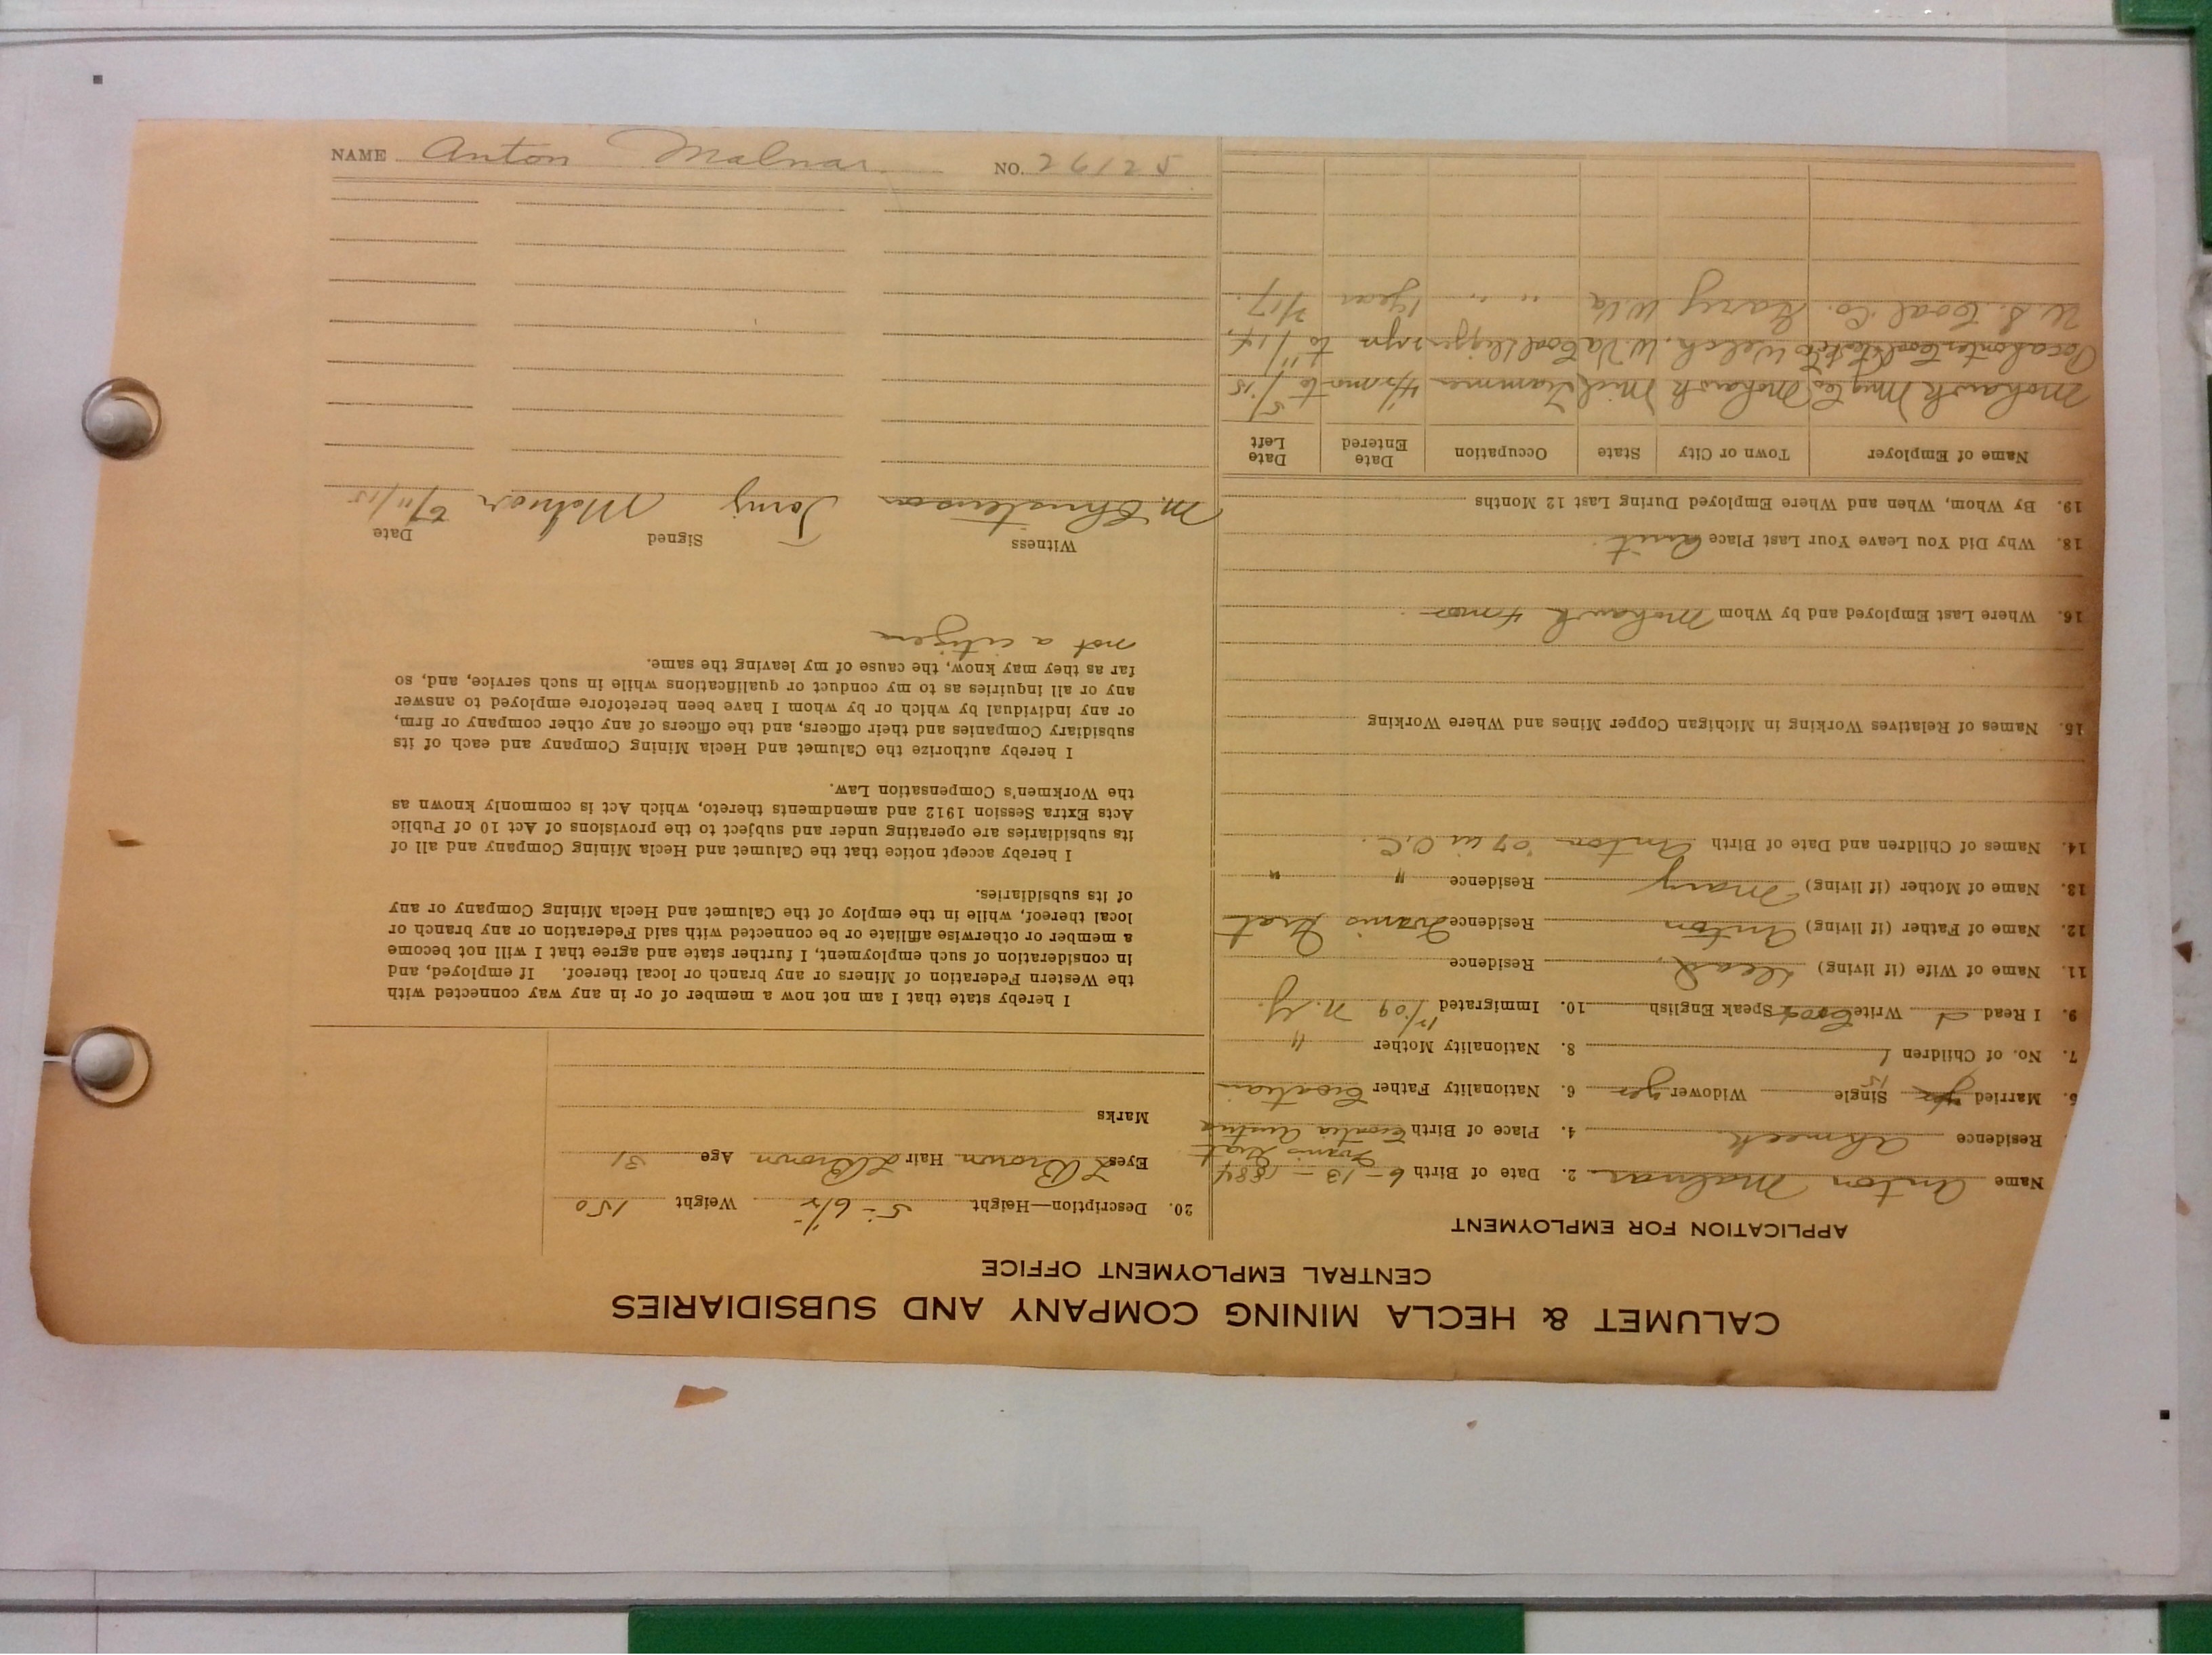 NAME Anton Malnar NO. 26125
CALUMET & HECLA MINING COMPANY AND SUBSIDIARIES
CENTRAL EMPLOYMENT OFFICE
APPLICATION FOR EMPLOYMENT
Name Anton Malnar 2. Date of Birth 6-13-1884
Residence Ahmeek 4. Place of Birth Croatia Austria
5. Married Single Widower yes 6. Nationality Father Croatian
7. No. of Children 1 8. Nationality Mother "
9. I Read Write Speak English 10. Immigrated /09 N.Y.
11. Name of Wife (if living) Dead. Residence
12. Name of Father (if living) Anton Residence
13. Name of Mother (if living) Mary Residence " "
14. Names of Children and Date of Birth Anton '07 in O.C.
15. Names of Relatives Working in Michigan Copper Mines and Where Working
16. Where Last Employed and by Whom Mohawk 4 mos
18. Why Did You Leave Your Last Place Quit
19. By Whom, When and Where Employed During Last 12 Months
Name of Employer Town or City State Occupation Date Entered Date Left
Mohawk Mng Co Mohawk Mich Trammer 4½ mo to 5/15
Welch. W.Va to 1/14
U.S. Coal Co. Gary W.Va " " 1 year
20. Description—Height 5-6½ Weight 150
Eyes L Brown Hair L Brown Age 31
Marks
I hereby state that I am not now a member of or in any way connected with
the Western Federation of Miners or any branch or local thereof. If employed, and
in consideration of such employment, I further state and agree that I will not become
a member or otherwise affiliate or be connected with said Federation or any branch or
local thereof, while in the employ of the Calumet and Hecla Mining Company or any
of its subsidiaries.
I hereby accept notice that the Calumet and Hecla Mining Company and all of
its subsidiaries are operating under and subject to the provisions of Act 10 of Public
Acts Extra Session 1912 and amendments thereto, which Act is commonly known as
the Workmen's Compensation Law.
I hereby authorize the Calumet and Hecla Mining Company and each of its
subsidiary Companies and their officers, and the officers of any other company or firm,
or any individual by which or by whom I have been heretofore employed to answer
any or all inquiries as to my conduct or qualifications while in such service, and, so
far as they may know, the cause of my leaving the same.
not a citizen
Witness Signed Date
M. Christenson Tony Molnar 6/11/15